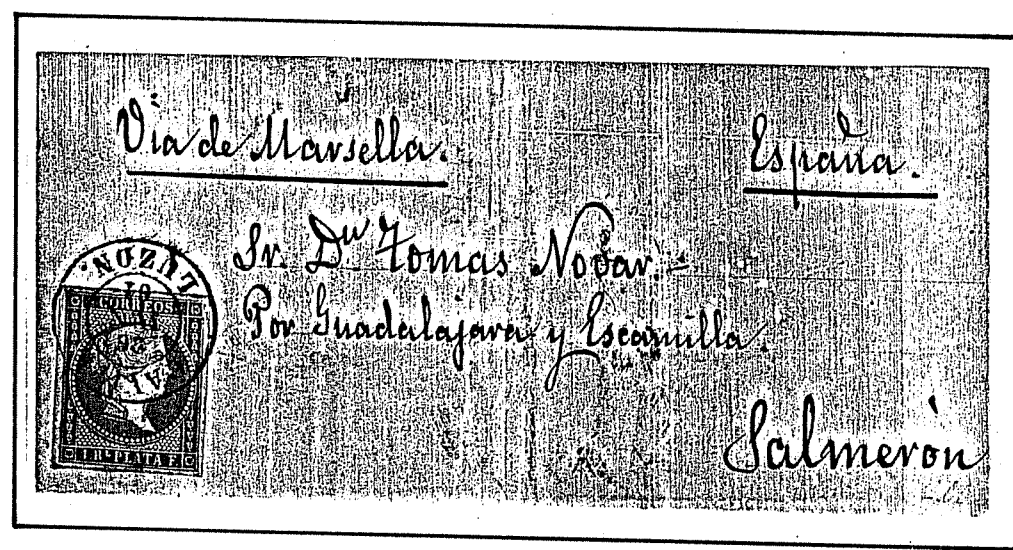 Via de Marsella.
España.
Sr. Dn Tomas Nodar.=
Por Guadalajara y Escamilla.
Salmerón
LUZON.
CORREOS
1 Rl PLATA F